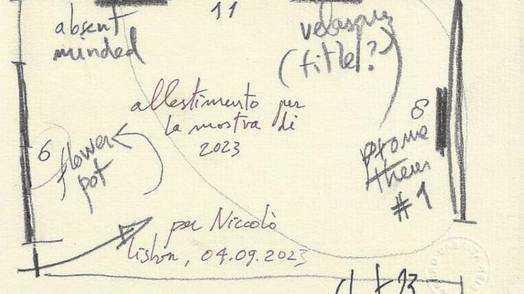 11
absent
minded
velasquez
(title?)
allestimento per
la mostra di
2023
8
6
flower
pot
Prome
theus
#1
per Niccolò
Lisbon, 04.09.2023